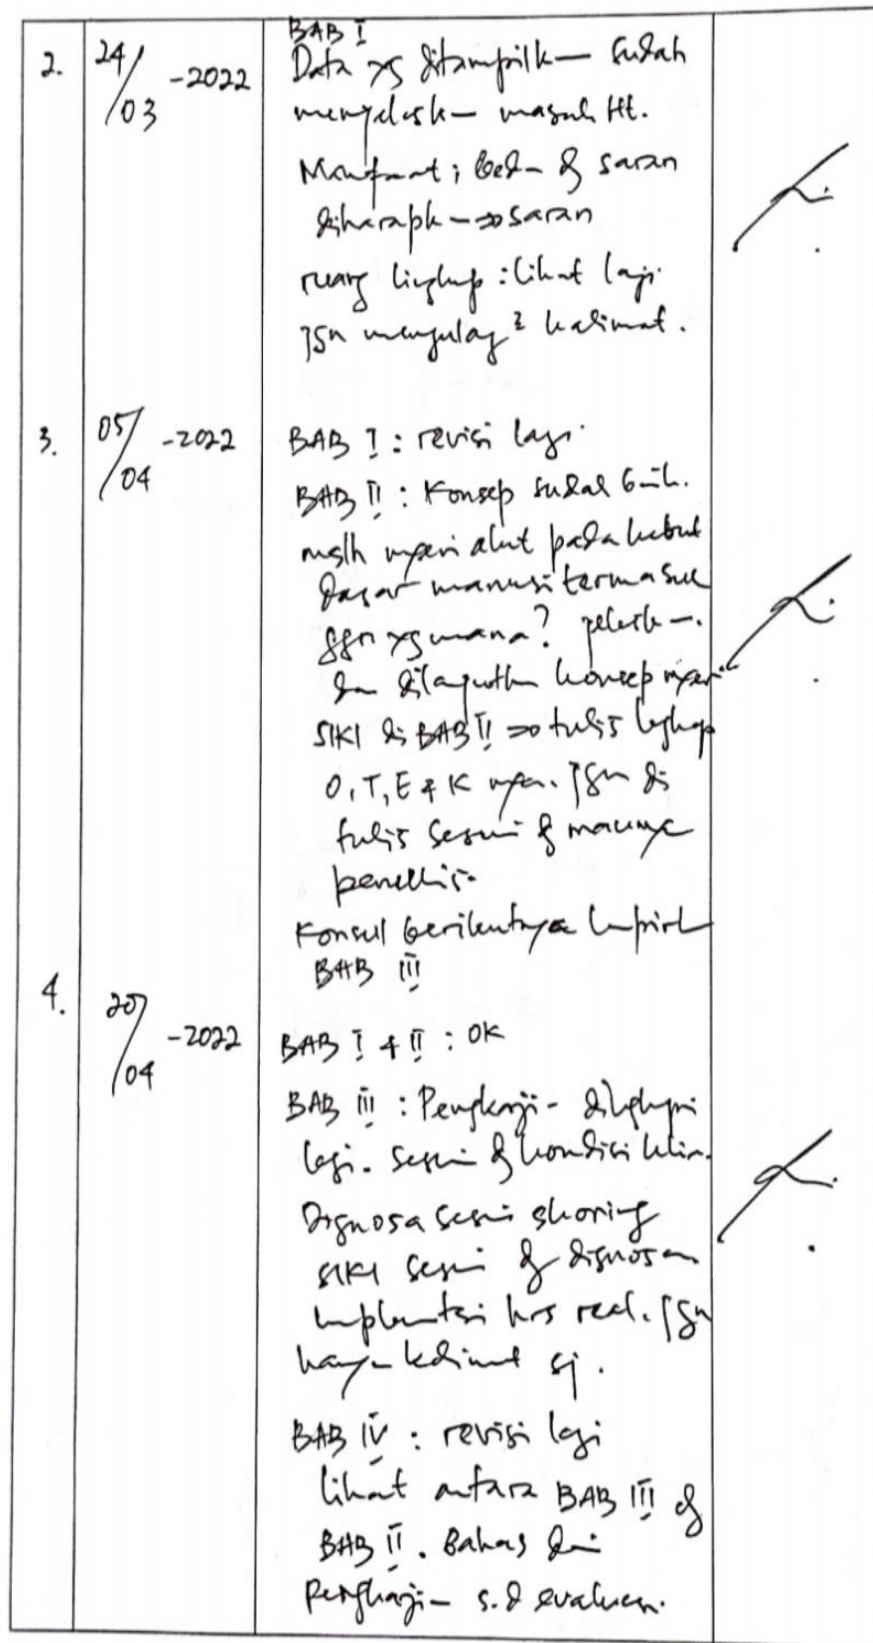 BAB I
2. 24/03 -2022 Data yg ditampilk— sudah
menjelask— masalah Ht.
Manfaat ; beda & saran
diharapk— => saran
ruang lingkup : lihat lagi
jgn mengulag² kalimat.
3. 05/04 -2022 BAB I : revisi lagi
BAB II : Konsep sudah
pada kebut
dasar manusi termasuk
ggn yg mana? jelask—.
konsep nyeri
SIKI di BAB II => tulis lengkap
O, T, E & K nyeri. jgn di
tulis sesuai dg maunya
penulis.
Konsul berikutnya
BAB III
4. 20/04 -2022 BAB I & II : OK
BAB III : Pengkaji- dilengkapi
lagi. sesuai dg kondisi klien.
Dignosa sesuai skoring
SIKI sesuai dg dignosa
Implemntasi hrs real. jgn
hanya kalimat sj.
BAB IV : revisi lagi
lihat antara BAB III dg
BAB II. Bahas dari
Pengkaji— s.d evaluasi.